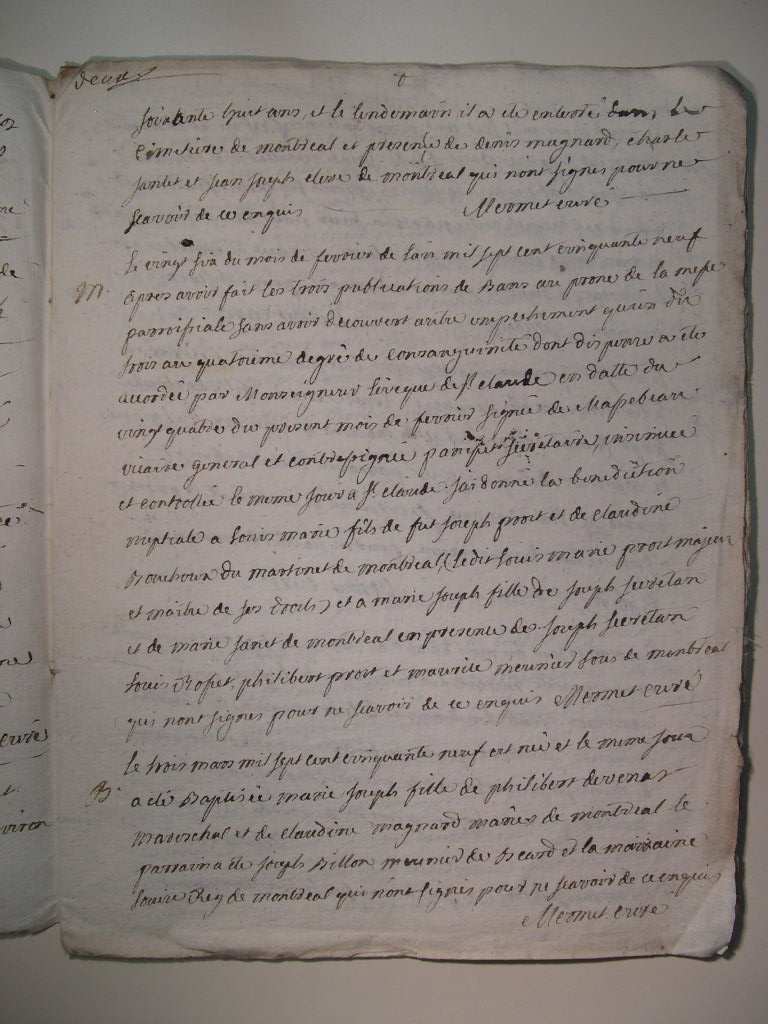 deux
soixante huit ans, et le lendemain il a ete enterré dans le
cimetiere de montreal et presence de denis magnard, charle
janlet et jean joseph clere de montreal qui nont signes pour ne
scavoir de ce enquis Mermet curé
Le vingt six du mois de fevrier de lan mil sept cent cinquante neuf
M. apres avoir fait les trois publications de Bans au prone de la messe
parroissiale sans avoir decouvert autre empechement quun du
trois au quatrieme degré de consanguinité dont dispence a ete
accordée par Monseigneur leveque de st claude en datte du
vingt quatre du present mois de fevrier signée de
vicaire general et contresignée par secretaire, insinuée
et controllée le meme jour a st. claude jai donné la benediction
nuptiale a louis marie fils de fut joseph prost et de claudine
Bouchoux du martinet de montreal, (ledit louis marie prost majeur
et maitre de ses droits) et a marie joseph fille de joseph secretan
et de marie janet de montreal en presence de joseph secretan
louis Rosset, philibert prost et maurice meunier tous de montreal
qui nont signes pour ne scavoir de ce enquis Mermet curé
Le trois mars mil sept cent cinquante neuf est née et le meme jour
B. a eté Baptisée marie joseph fille de philibert
mareschal et de claudine magnard mariés de montreal le
parrain a ete joseph Billon meunier de et la marraine
louise Rey de montreal qui nont signés pour ne scavoir de ce enquis
Mermet curé